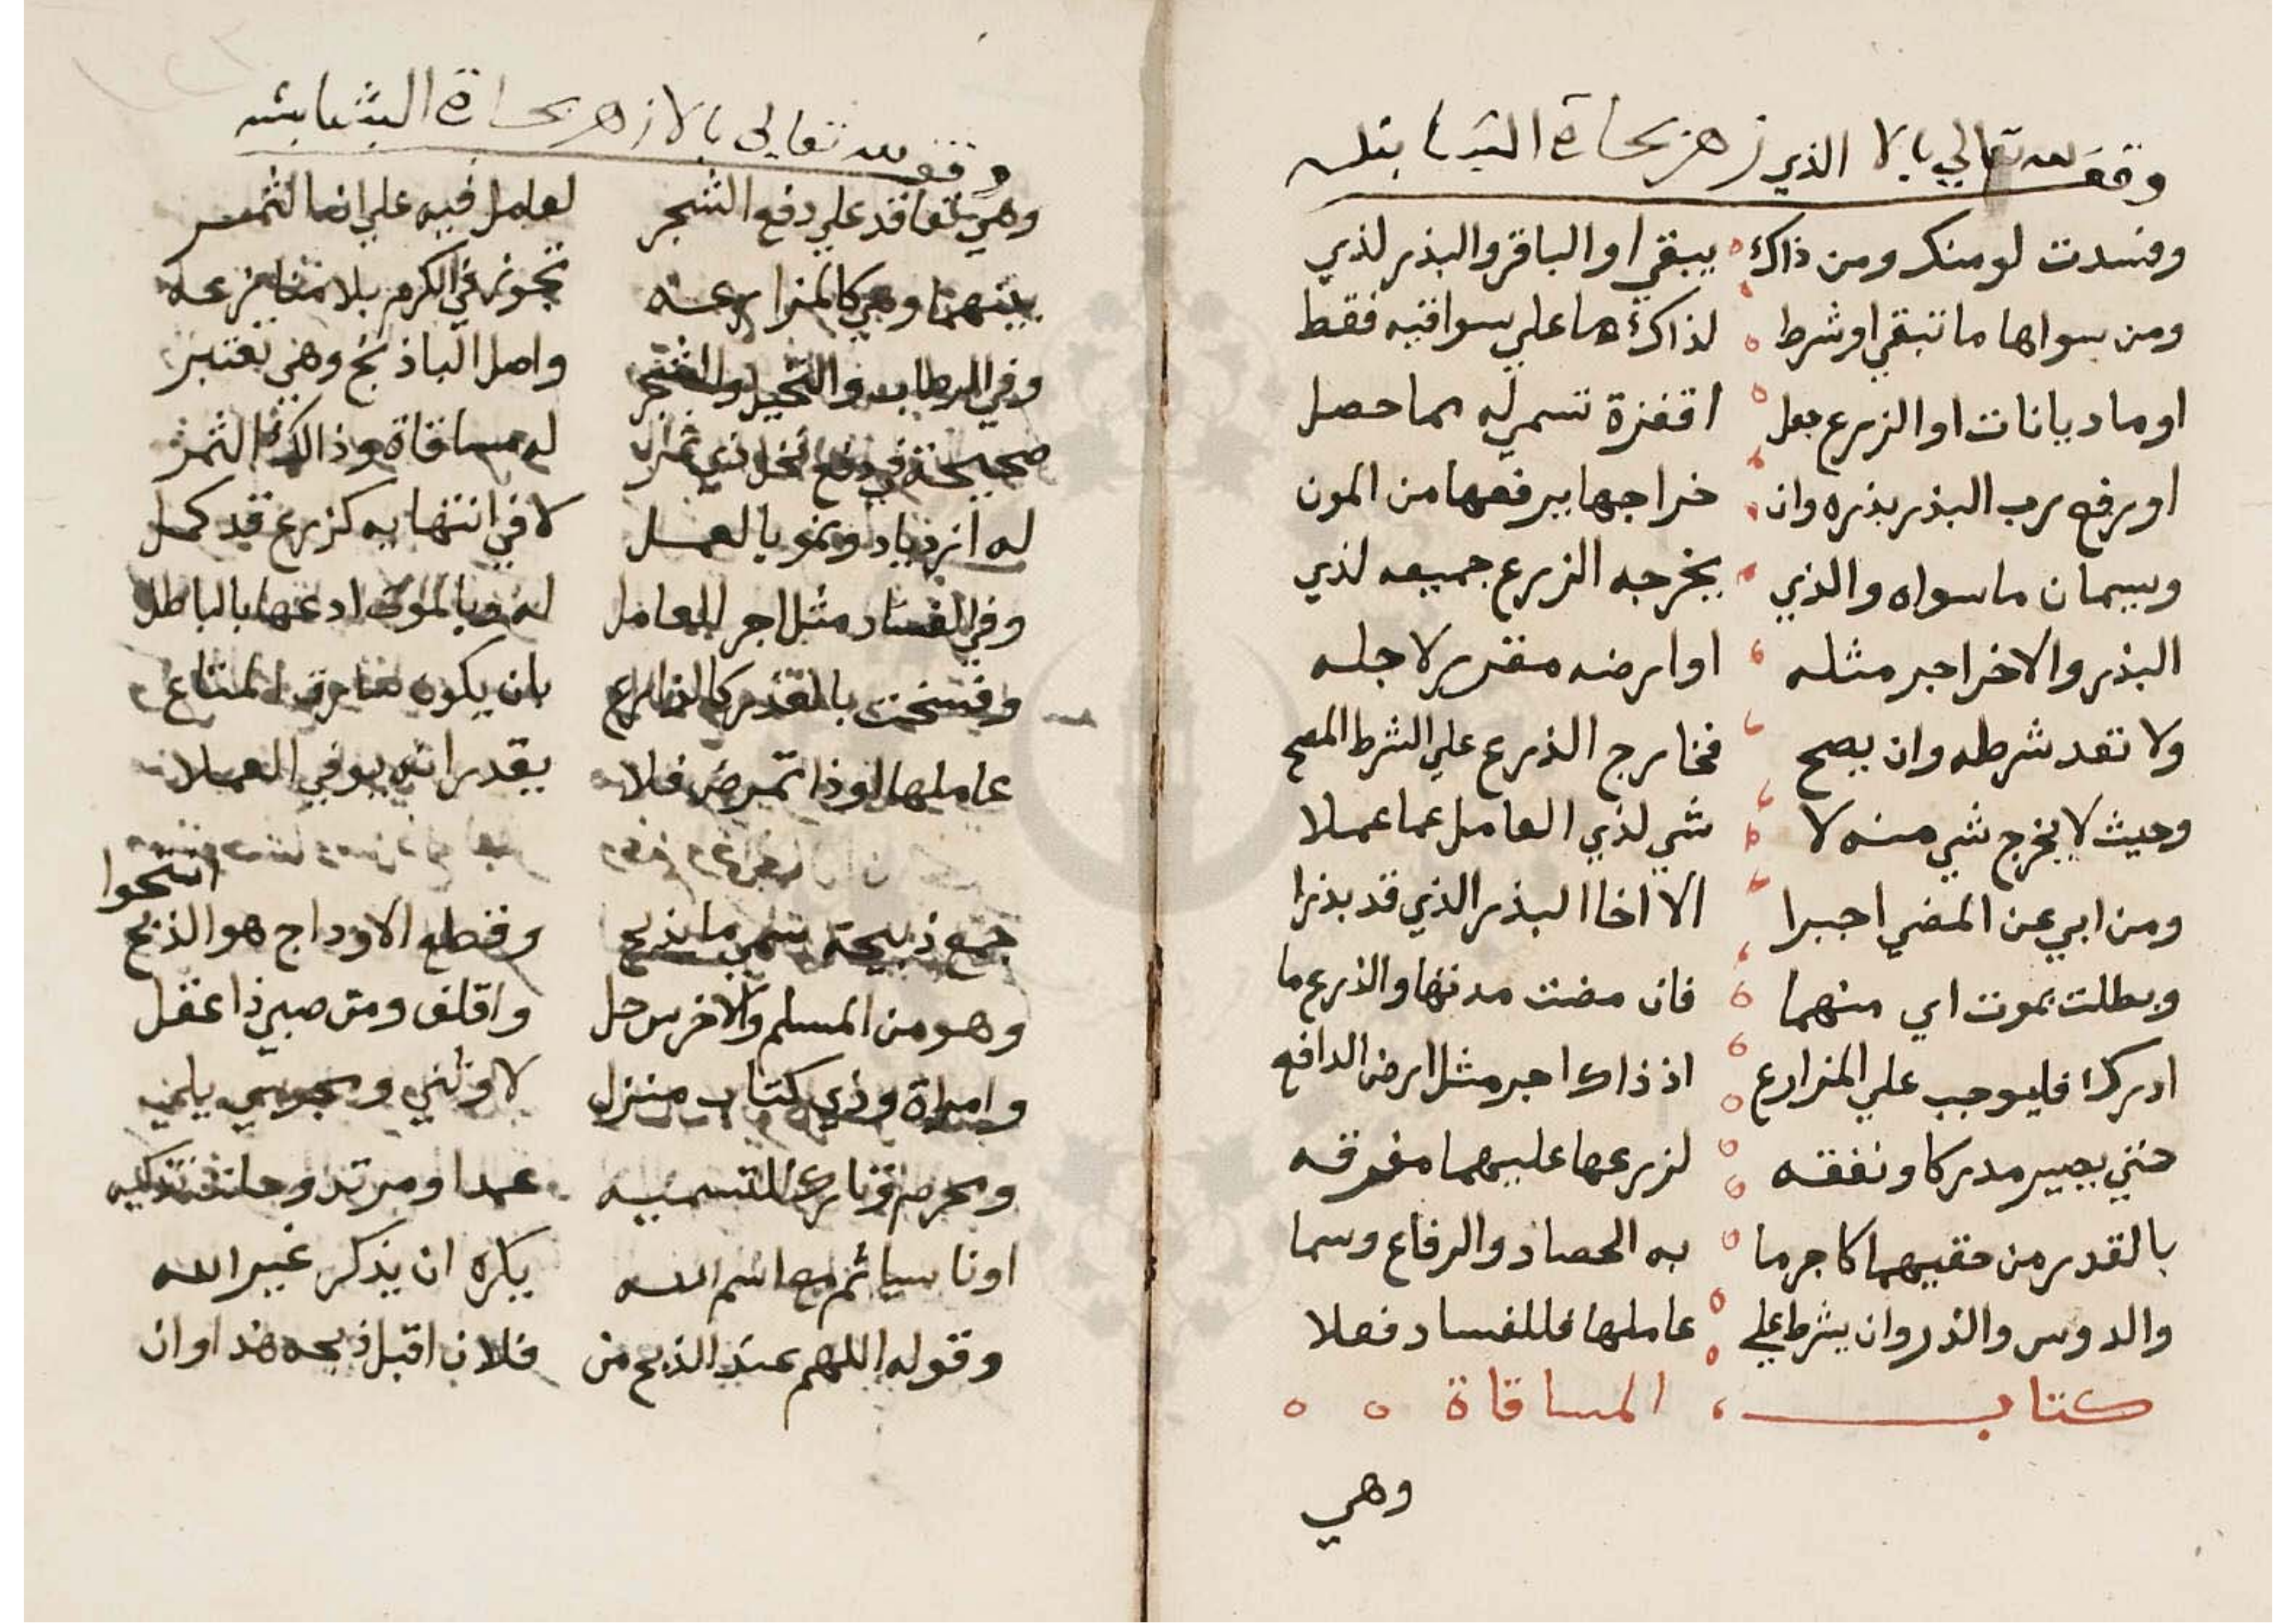 وقف لله تعالي بالا الذي زهر بحارة الشنابله
وفسدت لو منك ومن ذاك يبقي او الباقر والبذر لذي
ومن سواها ما تبقي او شرط لذاك ما علي سواقيه فقط
او ماديانات او الزرع جعل اقفزة تسمي له مما حصل
او يرفع رب البذر بذره وان خراجها يرفعها من المون
ويسمان ما سواه والذي يخرجه الزرع جميعه لذي
البذر والاخر اجر مثله او ارضه مقرر لاجله
ولا تعد شرطه وان يصح فخارج الذرع علي الشرط المصح
وحيث لا يخرج شي منه لا شي لذي العامل عما عملا
ومن ابي عن المضي اجبرا الا اخا البذر الذي قد بذرا
وبطلت بموت اي منهما فان مضت مدتها والذرع ما
ادرك فليوجب علي المزارع اذ ذاك اجر مثل ارض الدافع
حتي يصير مدركا ونفقه لزرعها عليهما مفرقه
بالقدر من حقيهما كاجر ما به الحصاد والرفاع وسما
والدوس والذر وان يشرط علي عاملها فللفساد فعلا
كتاب المساقاة
وهي
وقف لله تعالي بالازهر بحارة الشنابله
وهي تعاقد علي دفع الشجر لعامل فيه علي انما الثمر
بينهما وهي كالمزارعه تجوز في الكرم بلا منازعه
وفي الرطاب والنخيل والشجر واصل الباذنج وهي تعتبر
صحيحة في دفع نخل ذي ثمر له مساقاة وذالك الثمر
له ازدياد ونمو بالعمل لا في انتهايه كزرع قد كمل
وفي الفساد مثل اجر للعامل له وبالموت ادعها بالباطل
وفسخت بالعذر كالذارع بان يكون سارق المتاع
عاملها او ذا تمرض فلا يقدر انه يوفي العملا
انتحوا
جمع ذبيحة تسمي ما يذبح وقطع الاوداج هو الذبح
وهو من المسلم والاخرس حل واقلف ومن صبي ذا عقل
وامراة وذي كتاب منزل لا وثني ومجوسي يلي
ومحرم وتارك للتسميه عمدا ومرتد وحلت تذكيه
او ناسيا ثم مع اسم الله يكره ان يذكر غير الله
وقوله اللهم عند الذبح من فلان اقبل ذبحه هذا وان